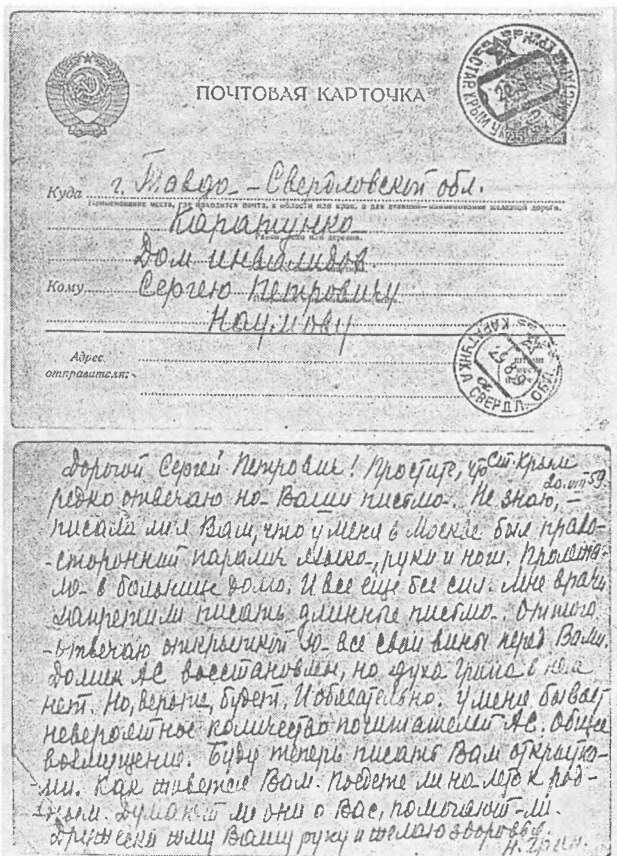 ПОЧТОВАЯ КАРТОЧКА
СТАР. КРЫМ
Куда г. Тавда - Свердловской обл.
Наименование места, где находится почта, и области или края, а для станций—наименование железной дороги.
Каратунка
Район, село или деревня.
Дом инвалидов.
Кому Сергею Петровичу
Наумову
Адрес отправителя:
КАРАТУНКА СВЕРДЛ. ОБЛ.
Ст. Крым
20.VIII 59.
Дорогой Сергей Петрович! Простите, что
редко отвечаю на Ваши письма. Не знаю, -
писала ли я Вам, что у меня в Москве был право-
-сторонний паралич языка, руки и ноги. Пролежа-
ла в больнице долго. И все еще без сил. Мне врачи
запретили писать длинные письма. Оттого
-отвечаю открыткой за все свои вины перед Вами.
Домик АС восстановлен, но духа Грина в нем
нет. Но, верьте, будет. И обязательно. У меня бывает
невероятное количество почитателей АС. Общее
возмущение. Буду теперь писать Вам открытка-
-ми. Как живется Вам. Поедете ли на лето к род-
-ным. Думают ли они о Вас, помогают-ли.
Дружески жму Вашу руку и желаю здоровья.
Н. Грин.